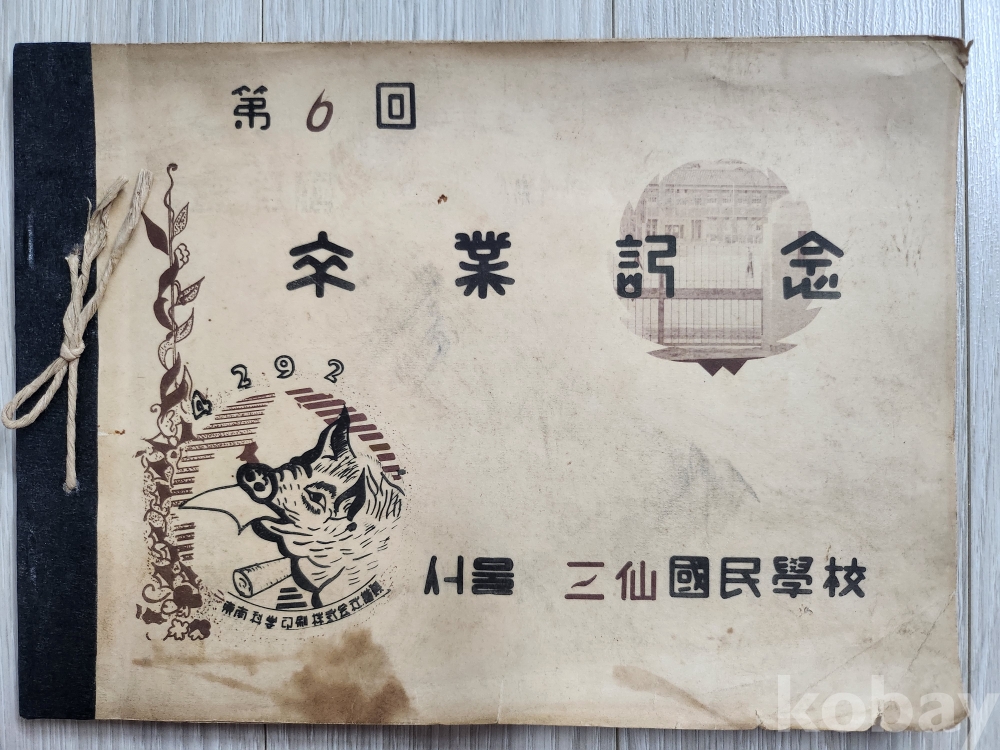 第6回
卒業記念
4292
서울 三仙國民學校
kobay